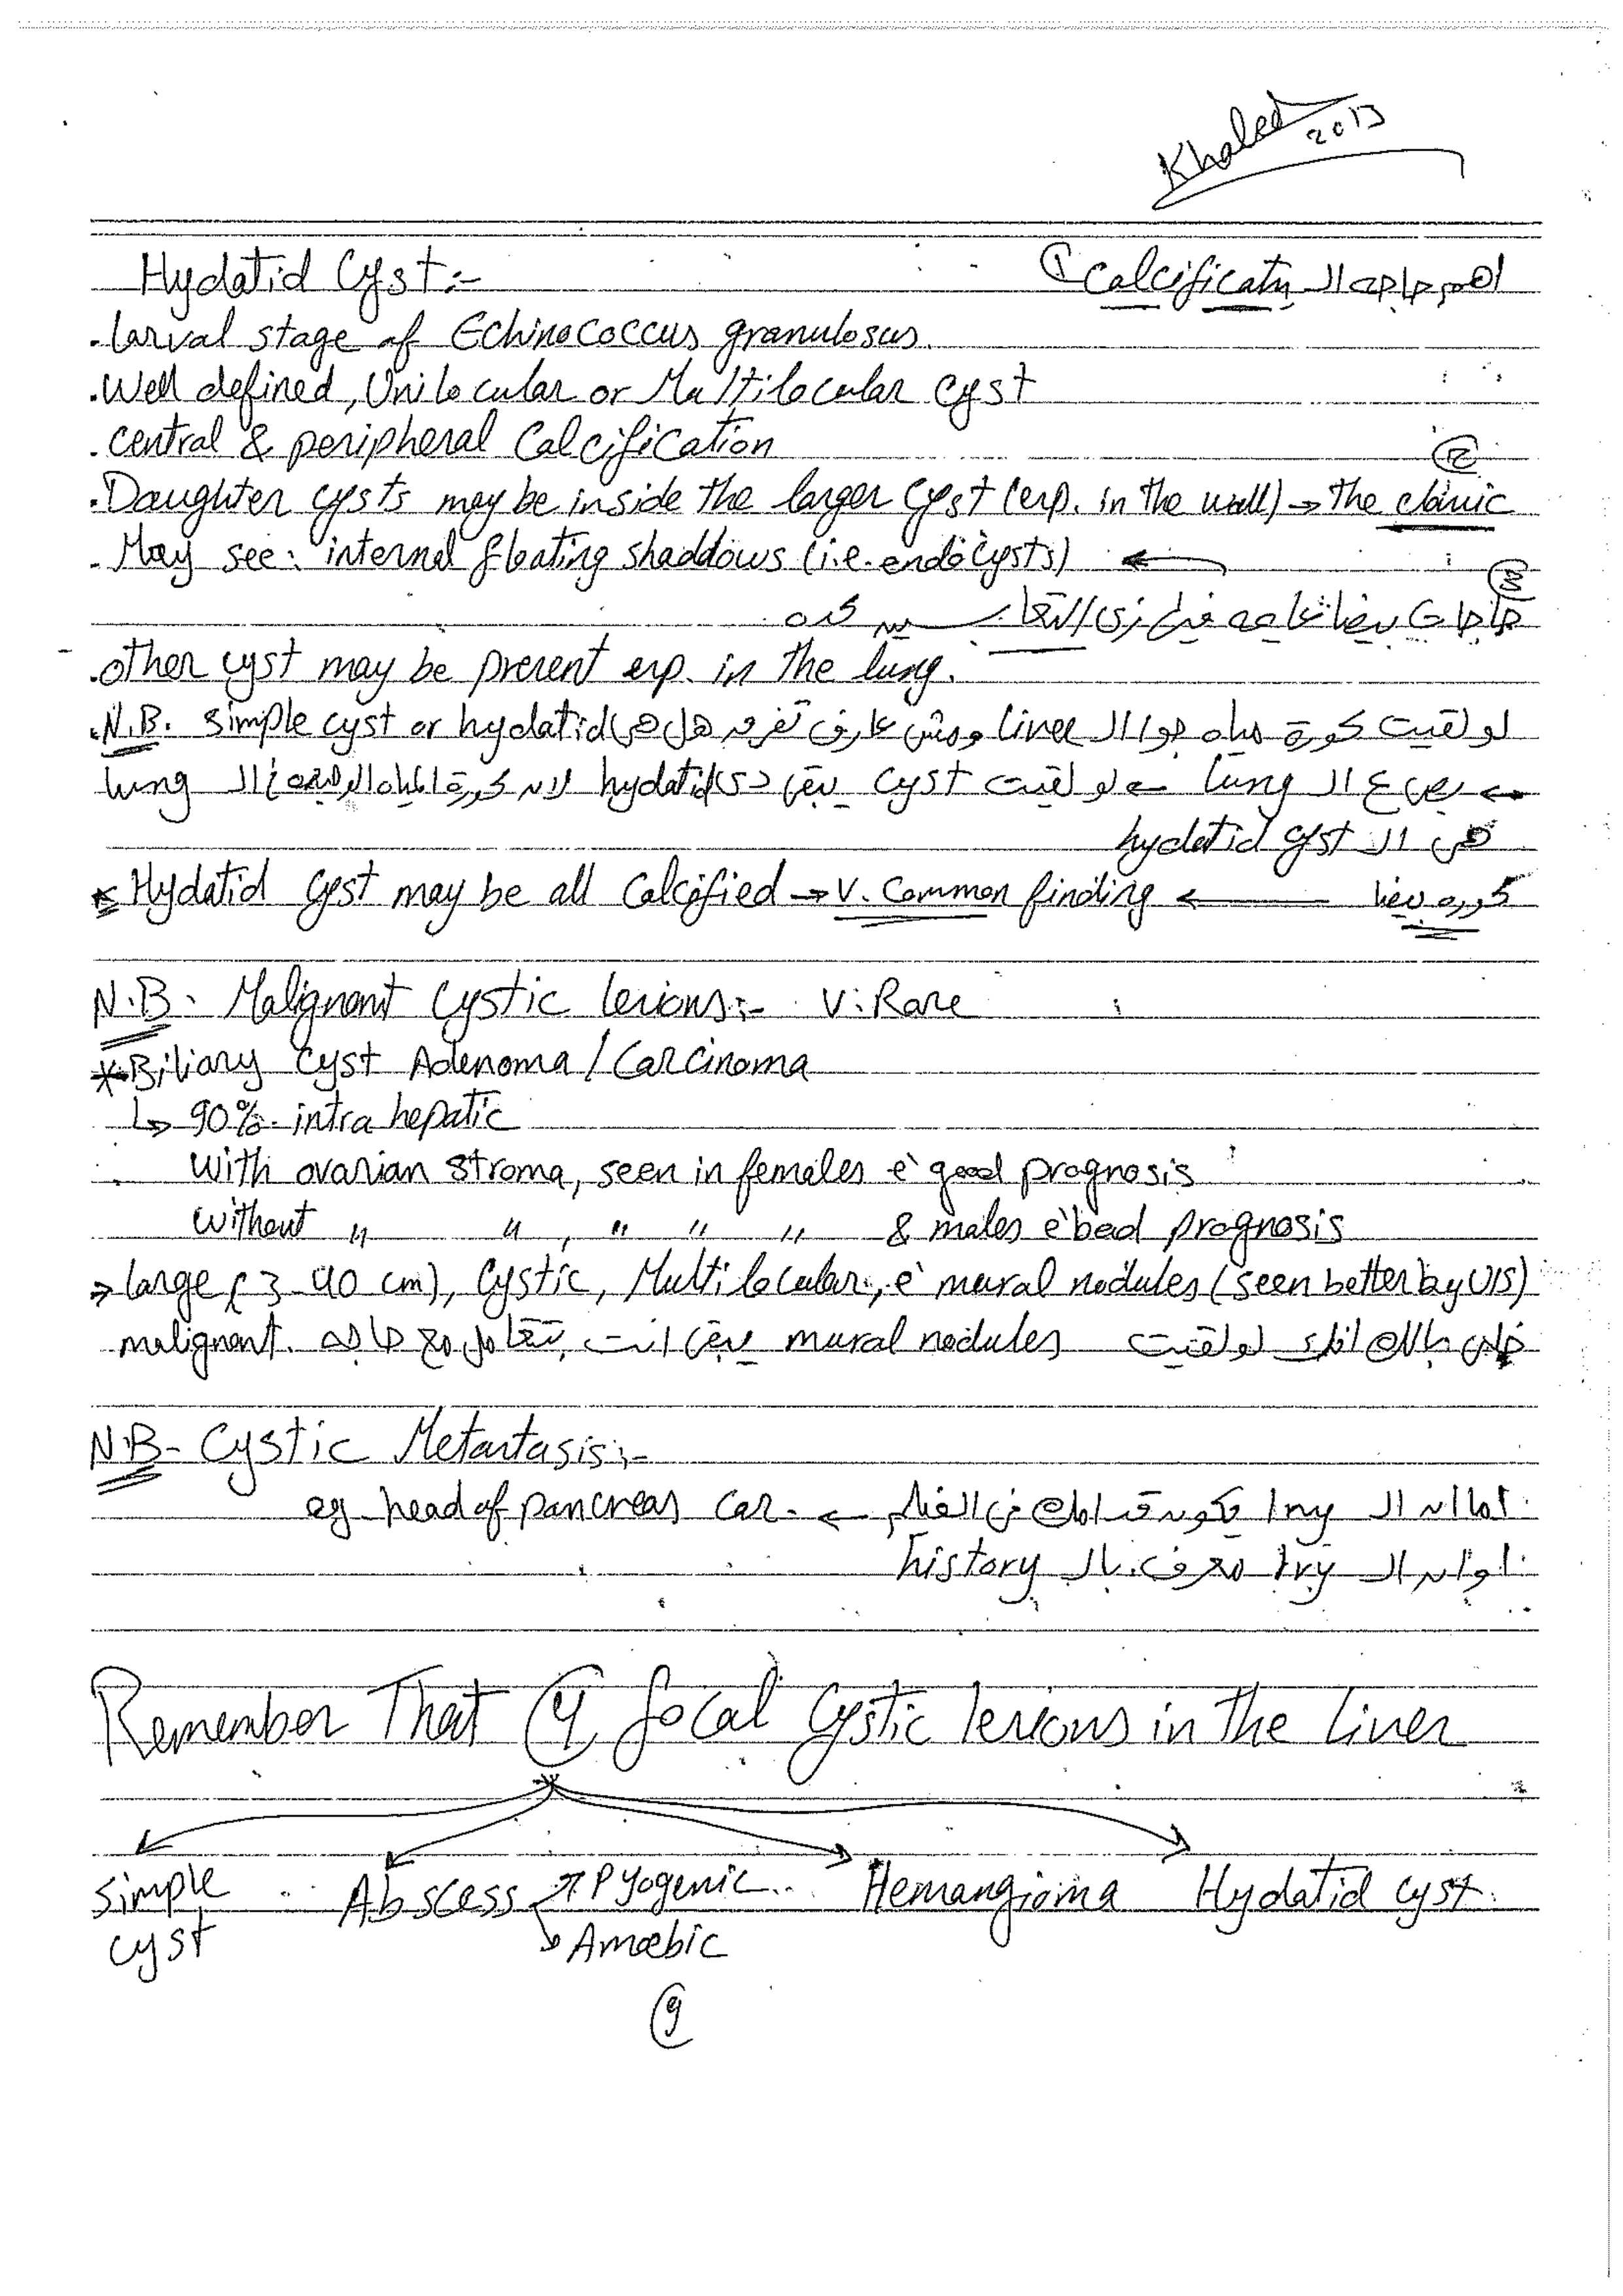 Khaled 2013
Hydatid Cyst:-
① اهم حاجه ال Calcificatn
. larval stage of Echinococcus granulosus.
. Well defined, Unilocular or Multilocular Cyst
. central & peripheral Calcification
②
. Daughter cysts may be inside the larger cyst (esp. in the wall) → the classic
. May see: internal floating shaddows (i.e. endocysts) ←
③ حاجات بيضا عايمه زى كده
. other cyst may be present esp. in the lung.
. N.B. لو لقيت كورة مياه جوا ال Liver ومش عارف تفرق هل هى simple cyst or hydatid
← بص ع ال lung ← لو لقيت cyst يبقى دى hydatid لان كورة المياه الوحيدة فى ال lung
هى ال hydatid cyst
* Hydatid Cyst may be all Calcified → V. Common finding ← كوره بيضا
N.B. Malignant Cystic lesions:- V. Rare
* Biliary Cyst Adenoma / Carcinoma
↳ 90% intra hepatic
with ovarian stroma, seen in females c̀ good prognosis
without " " , " " " & males c̀ bad prognosis
→ large (3-40 cm), Cystic, Multilocular, c̀ mural nodules (seen better by U/S)
خلى بالك انك لو لقيت mural nodules يبقى انت بتتعامل مع حاجه malignant.
N.B- Cystic Metastasis:-
اما ان ال 1ry يكون قدامك فى الفيلم ← eg. head of pancreas car.
او ان ال 1ry معروف بال history
Remember That ④ focal Cystic lesions in the Liver
Simple cyst
Abscess ↗ Pyogenic
↘ Amoebic
Hemangioma
Hydatid cyst.
9